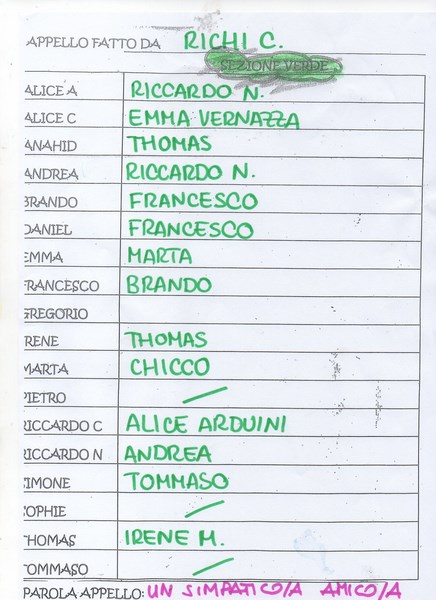 APPELLO FATTO DA RICHI C.
SEZIONE VERDE
ALICE A RICCARDO N.
ALICE C EMMA VERNAZZA
ANAHID THOMAS
ANDREA RICCARDO N.
BRANDO FRANCESCO
DANIEL FRANCESCO
EMMA MARTA
FRANCESCO BRANDO
GREGORIO
IRENE THOMAS
MARTA CHICCO
PIETRO /
RICCARDO C ALICE ARDUINI
RICCARDO N ANDREA
SIMONE TOMMASO
SOPHIE /
THOMAS IRENE M.
TOMMASO /
PAROLA APPELLO: UN SIMPATICO/A AMICO/A